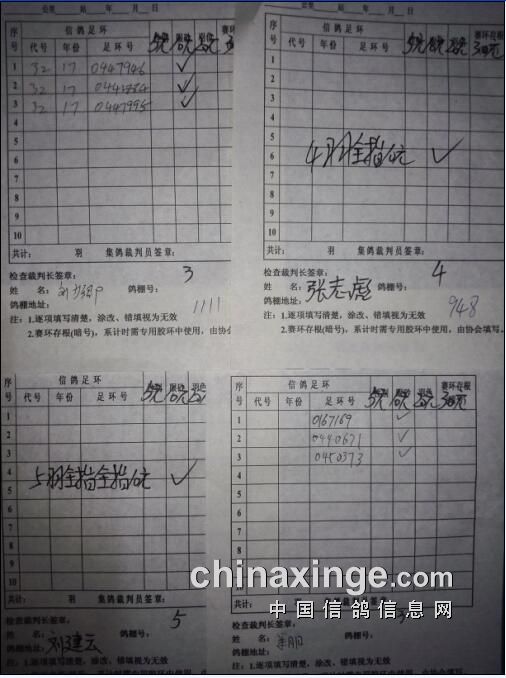 公里 站 年 月 日
序号 信鸽足环
代号 年份 足环号
1 32 17 0447946
2 32 17
3 32 17 0447995
4
5
6
7
8
9
10
共计： 羽 集鸽裁判员签章：
3
检查裁判长签章：
姓 名： 鸽棚号：
鸽棚地址： 1111
注：1.逐项填写清楚，涂改、错填视为无效
2.赛环存根(暗号)，系计时需专用胶环中使用，由协会
公里 站 年 月 日
序号 信鸽足环 赛环存根
代号 年份 足环号
1
2
3
4
5
6 4羽全指10元
7
8
9
10
共计： 羽 集鸽裁判员签章：
4
检查裁判长签章：
姓 名：张志彪 鸽棚号：
鸽棚地址： 948
注：1.逐项填写清楚，涂改、错填视为无效
2.赛环存根(暗号)，系计时需专用胶环中使用，由协会填写。
序号 信鸽足环
代号 年份 足环号
1
2
3
4 5羽全指全指10元
5
6
7
8
9
10
共计： 羽 集鸽裁判员签章：
5
检查裁判长签章：
姓 名：刘建云 鸽棚号：
鸽棚地址：
注：1.逐项填写清楚，涂改、错填视为无效
序号 信鸽足环 赛环存根
代号 年份 足环号
1 0167169
2 0440671
3 0450373
4
5
6
7
8
9
10
共计： 羽 集鸽裁判员签章：
检查裁判长签章：
姓 名： 鸽棚号：
鸽棚地址：
注：1.逐项填写清楚，涂改、错填视为无效
chinaxinge.com
中国信鸽信息网